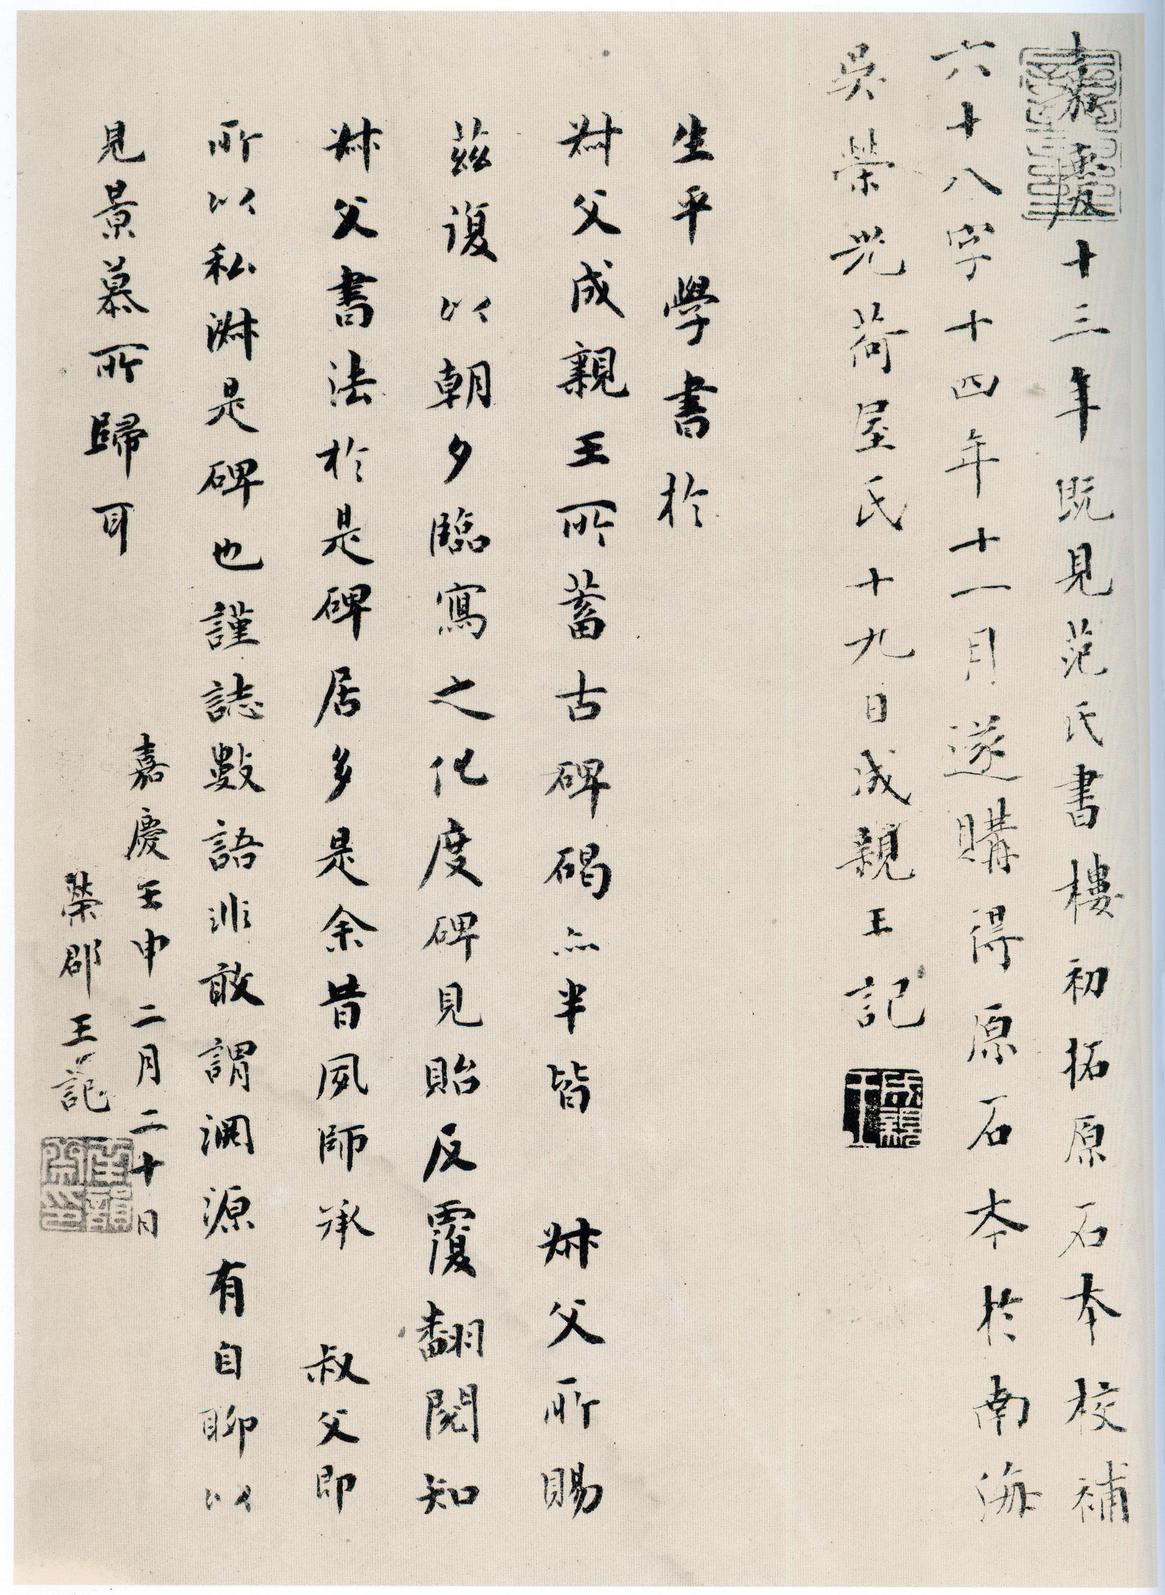 嘉慶十三年既見范氏書樓初拓原石本校補
六十八字十四年十一月遂購得原石本於南海
吳榮光荷屋氏十九日成親王記
成親王
生平學書於
叔父成親王所蓄古碑碣亦半皆 叔父所賜
茲復以朝夕臨寫之化度碑見貽反覆翻閱知
叔父書法於是碑居多是余昔夙師承 叔父即
所以私淑是碑也謹誌數語非敢謂淵源有自聊以
見景慕所歸耳
嘉慶壬申二月二十日
榮郡王記